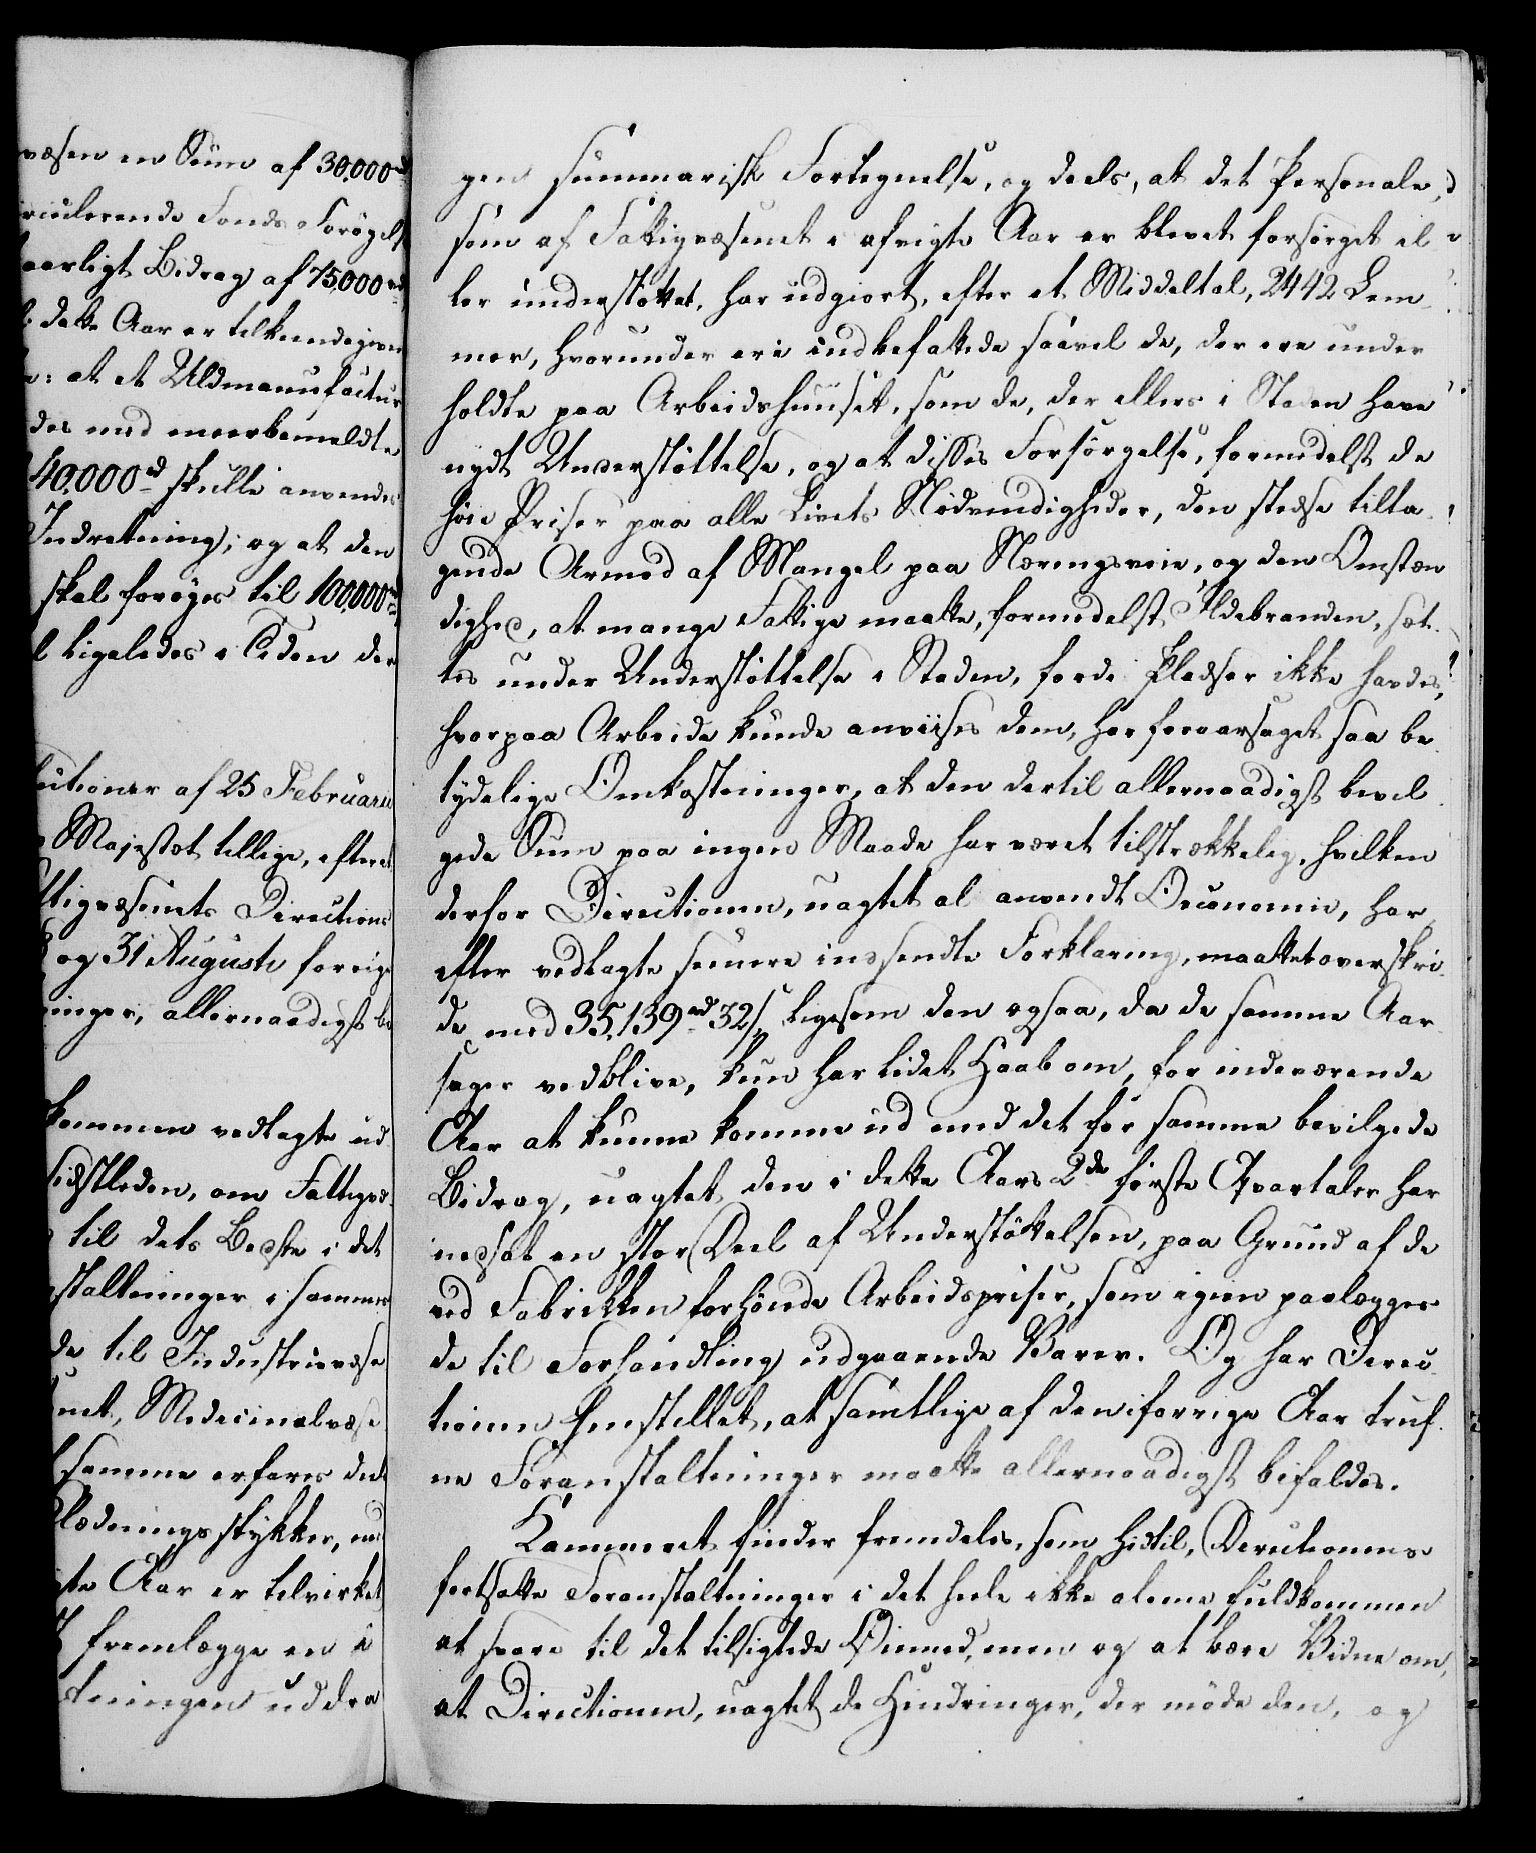 væsen en Sum af 30,000rd
rculerende Fonds Forøgels
aarligt Bidrag af 75,000rd
dette Aar er tilkiendegiven
: at et Uldmanufactur
des med meerbemeldte
40,000rd skulle anvendes
Indretning; og at den
skal forøges til 100,000rd
l ligeledes i Tiden der
lutioner af 25 Februarii
Majestæt tillige, efter et
ttigvæsenets Directions
og 31 Augusti forrige
inger, allernaadigst be
kommen vedlagte ud
sidstleden, om Fattigvæ
til dets Bedste i det
staltninger i samme
de til Industrievæse
net, Medicinalvæse
samme erfares det
Klædningsstykker, me
gte Aar er tilvirket
fremlægge en i
tningen uddra
gen summarisk Fortegnelse, og deels, at det Personale,
som af Fattigvæsenet i afvigte Aar er blevet forsørget el
ler understøttet, har udgiort, efter et Middeltal, 2442 Lem
mer, hvorunder ere indbefattede saavel de, der ere under
holdte paa Arbeidshuuset, som de, der ellers i Staden have
nydt Understøttelse, og at disses Forsørgelse, formedelst de
høie Priser paa alle Livets Nødvendigheder, den stedse tilta
gende Armod af Mangel paa Næringsveie, og den Omstæn
dighed, at mange Fattige maatte, formedelst Ildebranden, sæt
tes under Understøttelse i Staden, fordi Pladser ikke havdes,
hvorpaa Arbeide kunde anviises dem, har foraarsaget saa be
tydelige Omkostninger, at den dertil allernaadigst bevil
gede Sum paa ingen Maade har været tilstrækkelig, hvilken
derfor Directionen, uagtet al anvendt Oeconomie, har,
efter vedlagte seenere indsendte Forklaring, maattet overskri
de med 35,139rd 32/s, ligesom den ogsaa, da de samme Aar
sager vedblive, kun har lidet Haab om, for indeværende
Aar at kunne komme ud med det for samme bevilgede
Bidrag, uagtet den i dette Aars 2de første Qvartaler har
nedsat en stor Deel af Understøttelsen, paa Grund af de
ved Fabrikken forhøiede Arbeidspriser, som igien paalægges
de til Forhandling udgaaende Varer. Og har Direc
tionen henstillet, at samtlige af den i forrige Aar truf
ne Foranstaltninger maatte allernaadigst bifaldes.
Kammeret finder fremdeles, som hidtil, Directionens
fortsatte Foranstaltninger i det heele ikke alene fuldkommen
at svare til det tilsigtede Øiemed, men og at bære Vidne om,
at Directionen, uagtet de Hindringer, der møde den, og